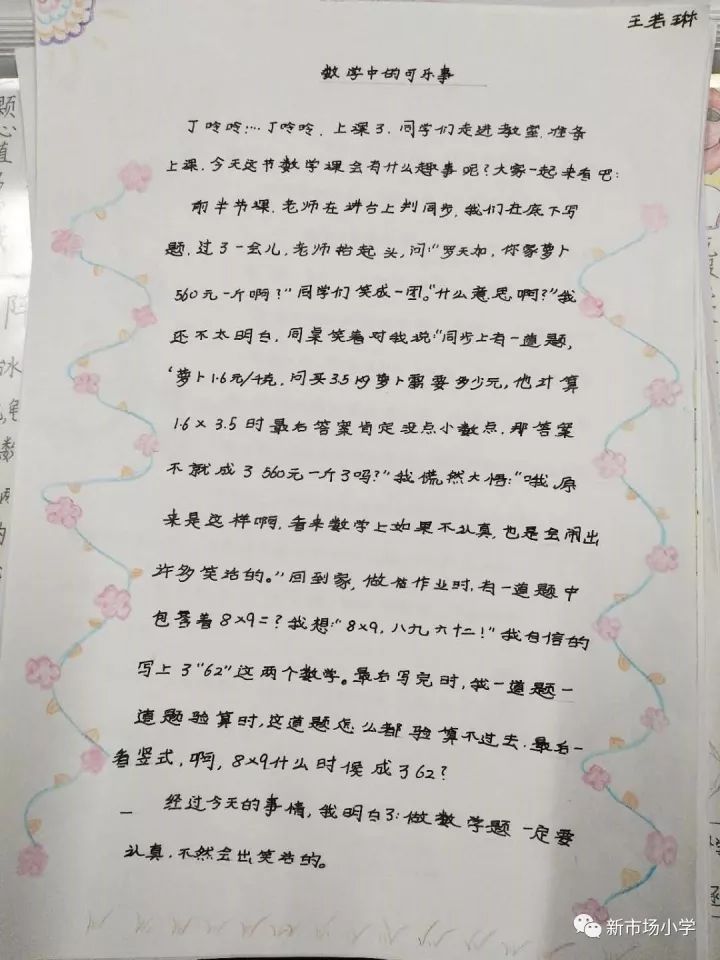 王若琳
数学中的可乐事
丁呤呤…丁呤呤，上课了，同学们走进教室，准备
上课，今天这节数学课会有什么趣事呢？大家一起来看吧：
前半节课，老师在讲台上判同步，我们在底下写
题，过了一会儿，老师抬起头，问：“罗天加，你家萝卜
560元一斤啊？”同学们笑成一团。“什么意思啊？”我
还不太明白，同桌笑着对我说：“同步上有一道题，
‘萝卜1.6元/千克，问买3.5kg萝卜需要多少元，他计算
1.6×3.5时最后答案肯定没点小数点，那答案
不就成了560元一斤了吗？”我慌然大悟：“哦，原
来是这样啊，看来数学上如果不认真，也是会闹出
许多笑话的。”回到家，做作业时，有一道题中
包含着8×9=？我想：“8×9，八九六十二！”我自信的
写上了“62”这两个数学。最后写完时，我一道题一
道题验算时，这道题怎么都验算不过去，最后一
看竖式，啊，8×9什么时候成了62？
经过今天的事情，我明白了：做数学题一定要
认真，不然会出笑话的。
新市场小学